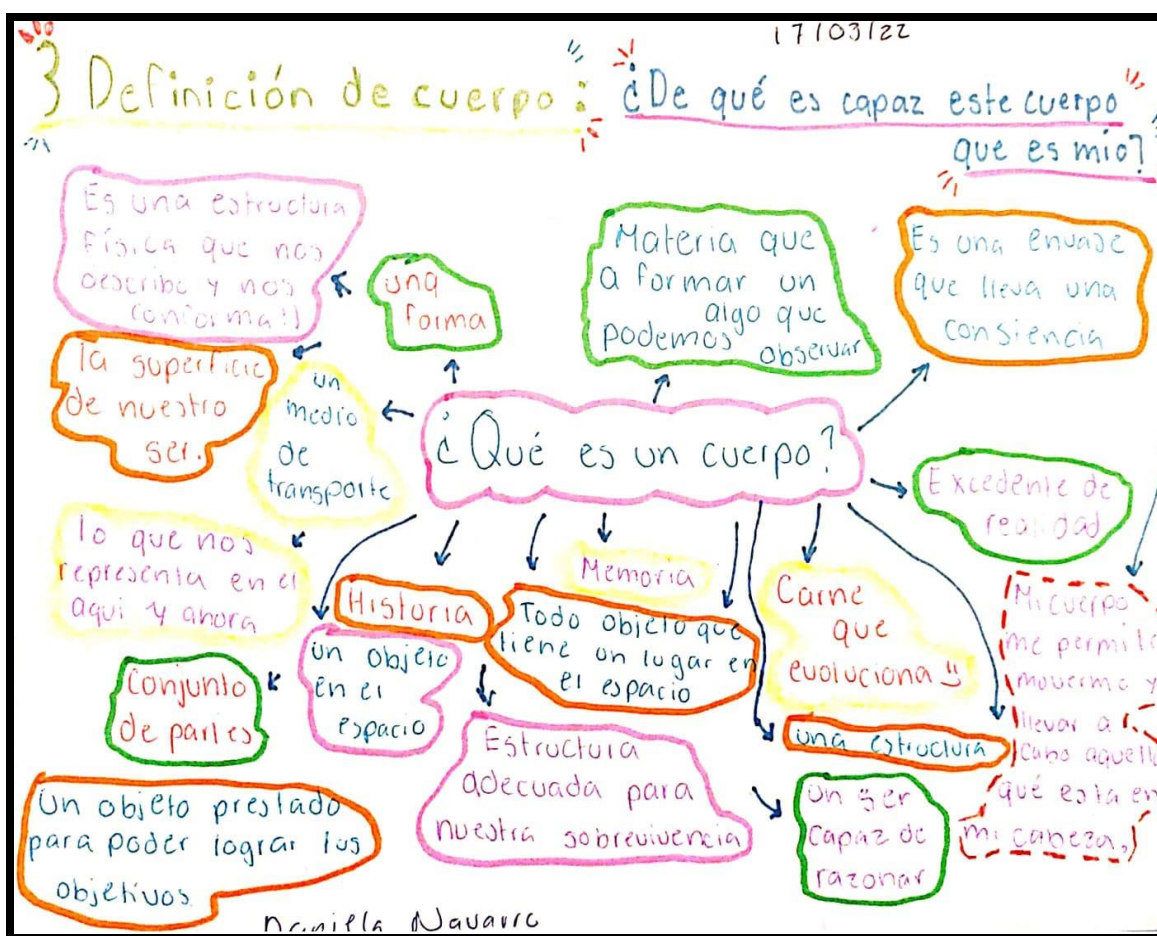 17/03/22
3 Definición de cuerpo:
¿De qué es capaz este cuerpo
que es mio?
Es una estructura
Física que nos
describe y nos
conforma!!
una
forma
Materia que
a formar un
algo que
podemos observar
Es una envase
que lleva una
consiencia
la superficie
de nuestro
ser.
un
medio
de
transporte
¿Qué es un cuerpo?
Excedente de
realidad
lo que nos
representa en el
aqui y ahora
Historia
Memoria
Todo objeto que
tiene un lugar en
el espacio
Carne
que
evoluciona
Mi cuerpo
me permite
moverme y
llevar a
cabo aquello
qué esta en
mi cabeza,
Conjunto
de partes
un objeto
en el
espacio
Estructura
adecuada para
nuestra sobrevivencia
una estructura
Un ser
capaz de
razonar
Un objeto prestado
para poder lograr tus
objetivos
Daniella Navarro